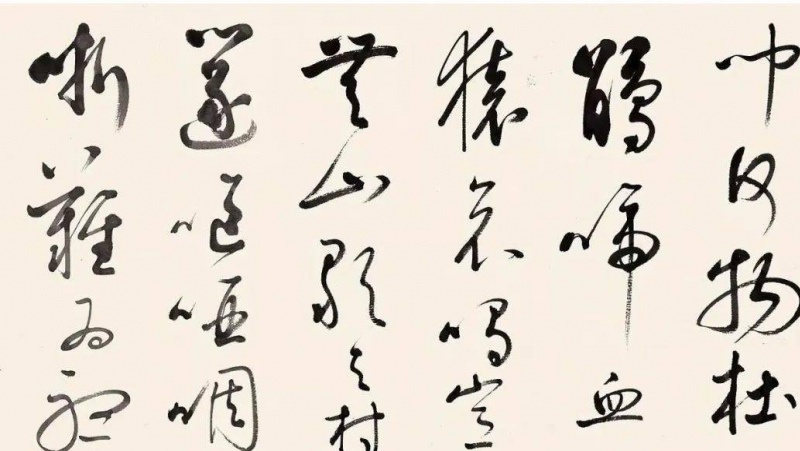 聞何物杜
鵑啼血
猿哀鳴豈
無山歌與村
篴嘔啞嘲
哳難為聽